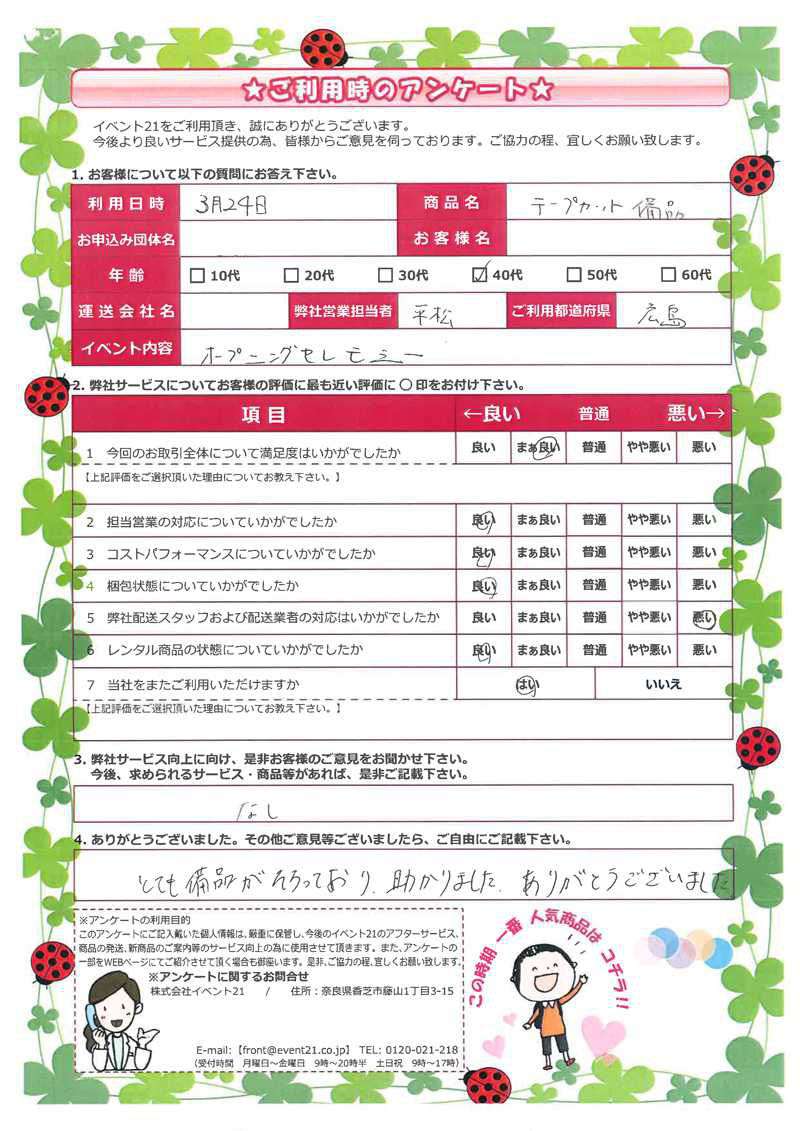 ★ご利用時のアンケート★
イベント21をご利用頂き、誠にありがとうございます。
今後より良いサービス提供の為、皆様からご意見を伺っております。ご協力の程、宜しくお願い致します。
1. お客様について以下の質問にお答え下さい。
利用日時 3月24日 商品名 テープカット備品
お申込み団体名 お客様名
年齢 □10代 □20代 □30代 ☑40代 □50代 □60代
運送会社名 弊社営業担当者 平松 ご利用都道府県 広島
イベント内容 オープニングセレモニー
2. 弊社サービスについてお客様の評価に最も近い評価に ○ 印をお付け下さい。
項目 ←良い 普通 悪い→
1 今回のお取引全体について満足度はいかがでしたか 良い まぁ良い 普通 やや悪い 悪い
【上記評価をご選択頂いた理由についてお教え下さい。】
2 担当営業の対応についていかがでしたか 良い まぁ良い 普通 やや悪い 悪い
3 コストパフォーマンスについていかがでしたか 良い まぁ良い 普通 やや悪い 悪い
4 梱包状態についていかがでしたか 良い まぁ良い 普通 やや悪い 悪い
5 弊社配送スタッフおよび配送業者の対応はいかがでしたか 良い まぁ良い 普通 やや悪い 悪い
6 レンタル商品の状態についていかがでしたか 良い まぁ良い 普通 やや悪い 悪い
7 当社をまたご利用いただけますか はい いいえ
【上記評価をご選択頂いた理由についてお教え下さい。】
3. 弊社サービス向上に向け、是非お客様のご意見をお聞かせ下さい。
今後、求められるサービス・商品等があれば、是非ご記載下さい。
なし
4. ありがとうございました。その他ご意見等ございましたら、ご自由にご記載下さい。
とても備品がそろっており、助かりました。ありがとうございました
※アンケートの利用目的
このアンケートにご記入戴いた個人情報は、厳重に保管し、今後のイベント21のアフターサービス、
商品の発送、新商品のご案内等のサービス向上の為に使用させて頂きます。また、アンケートの
一部をWEBページにてご紹介させて頂く場合も御座います。是非、ご協力の程、宜しくお願い致します。
※アンケートに関するお問合せ
株式会社イベント21 / 住所：奈良県香芝市藤山1丁目3-15
E-mail:【front@event21.co.jp】 TEL: 0120-021-218
(受付時間 月曜日～金曜日 9時～20時半 土日祝 9時～17時)
この時期 一番 人気商品は コチラ!!